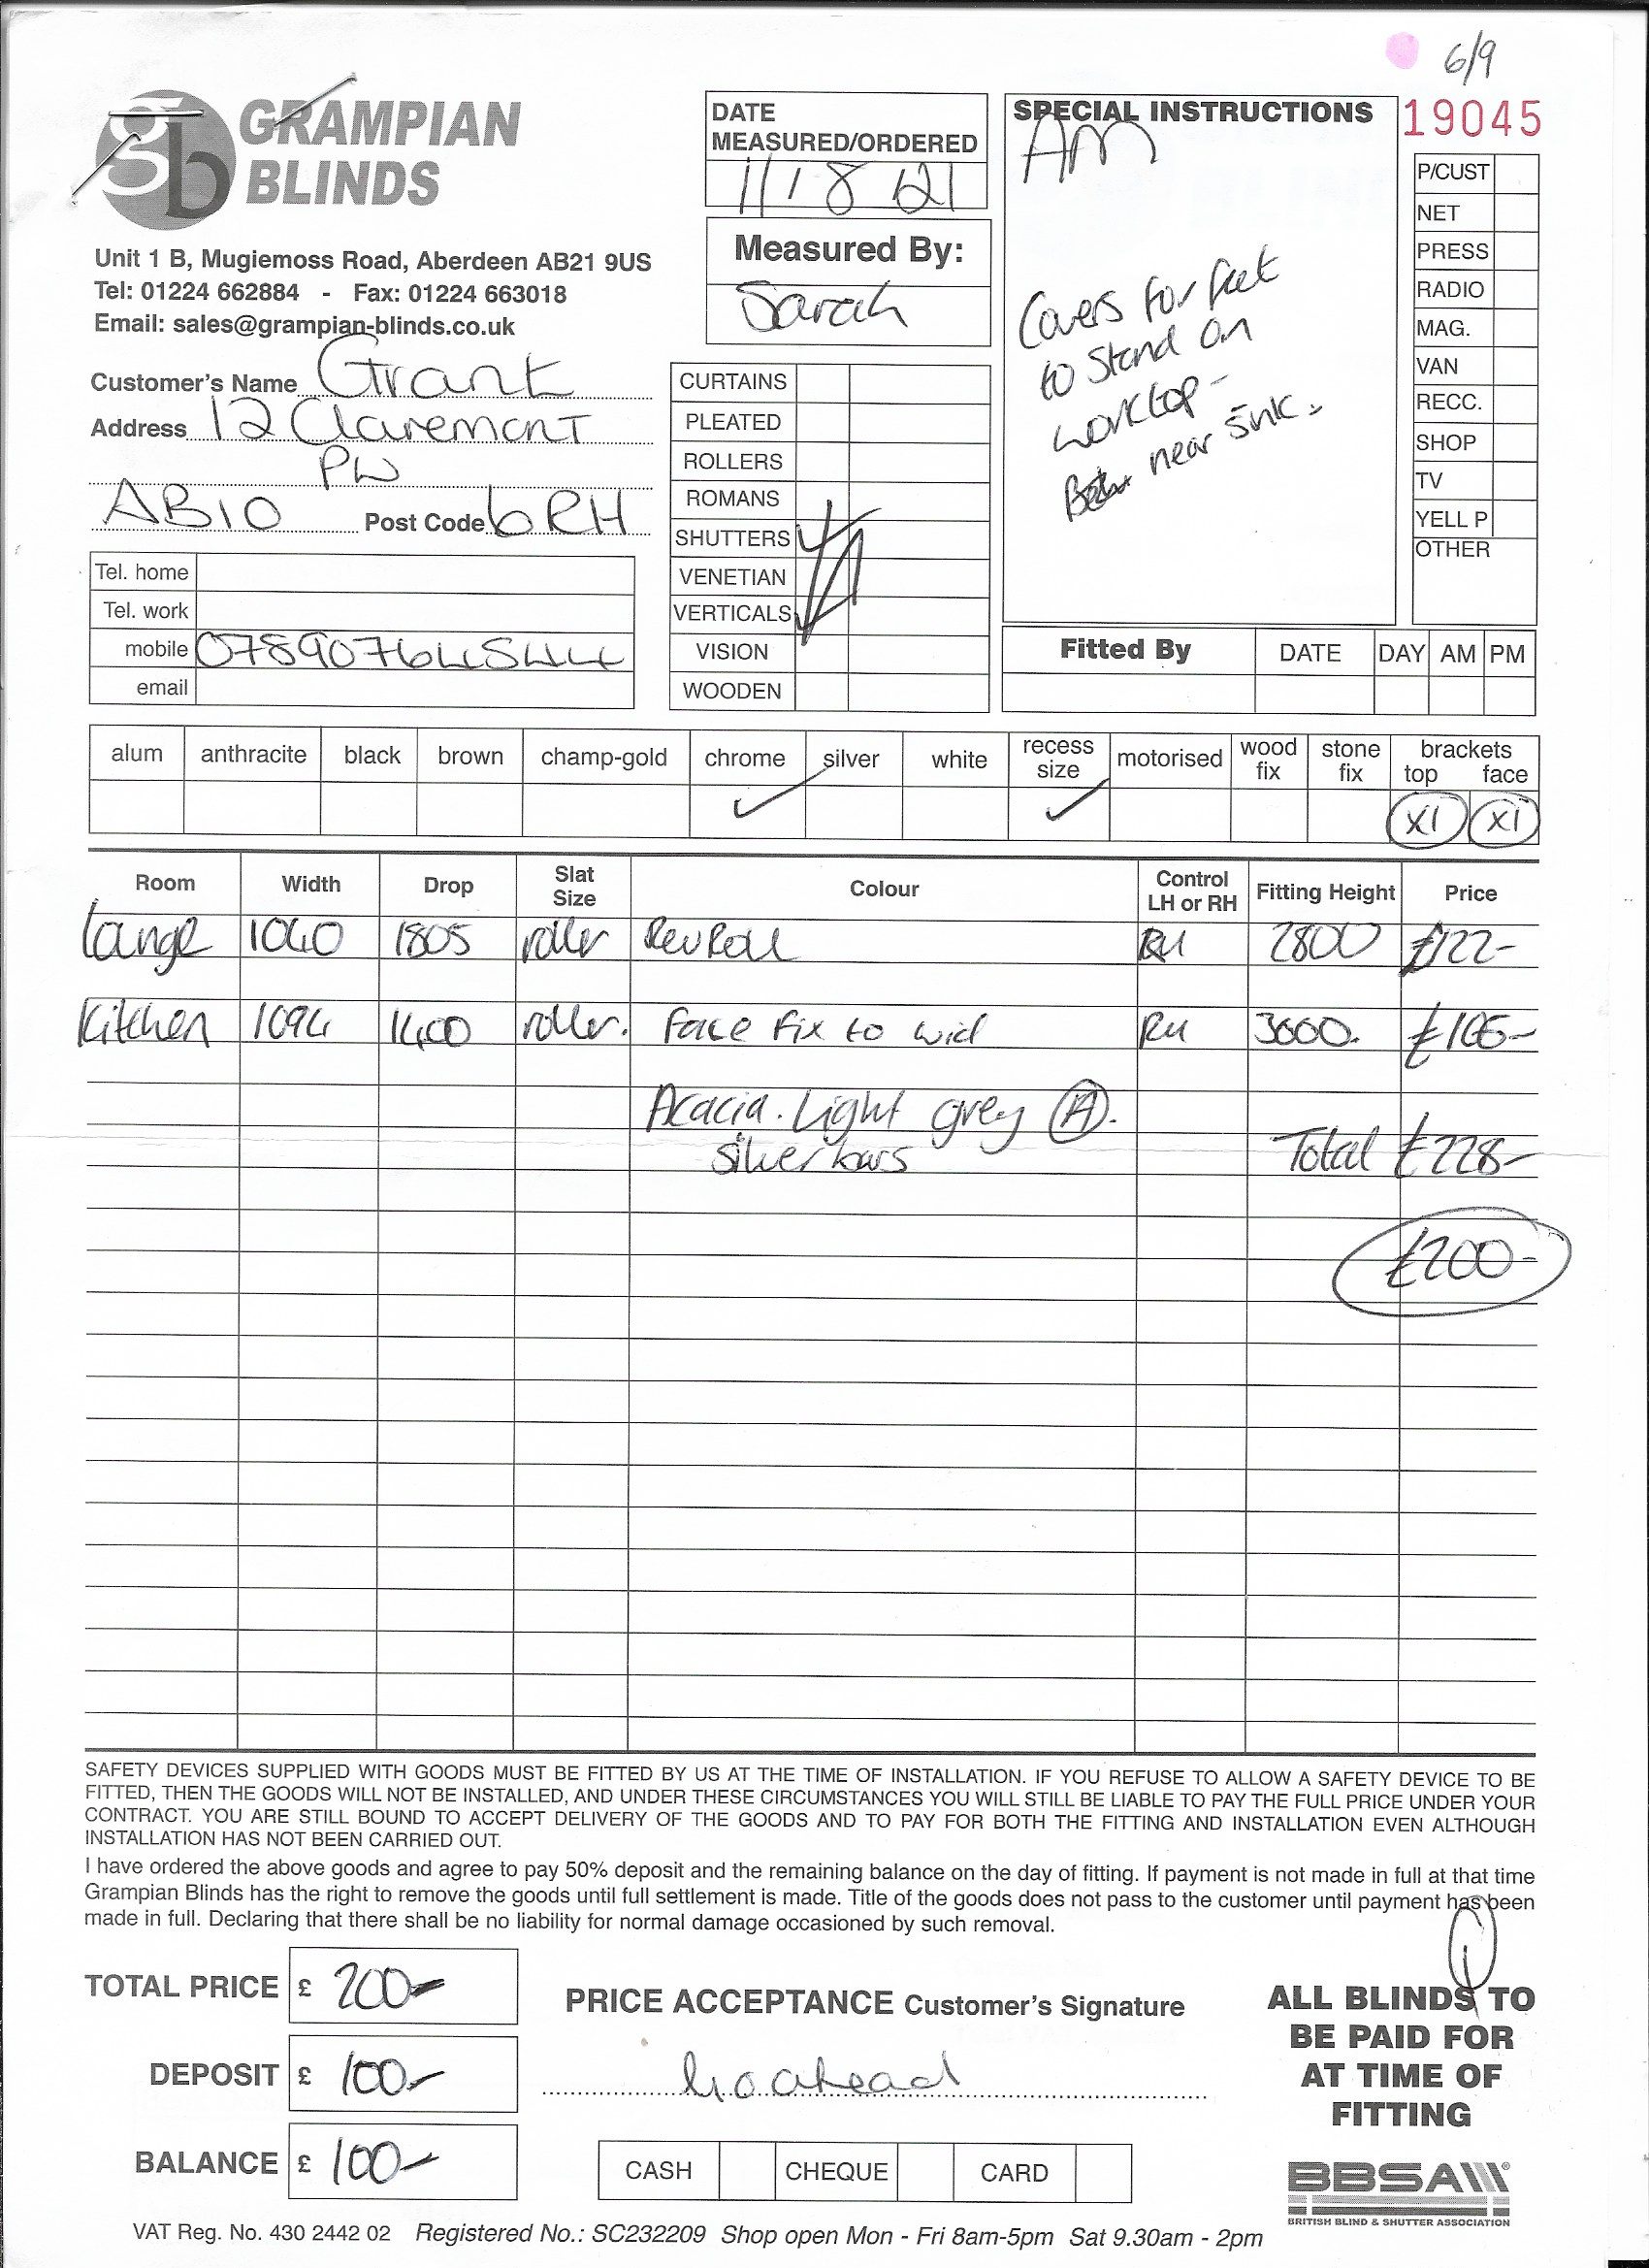 6/9
GRAMPIAN
BLINDS
Unit 1 B, Mugiemoss Road, Aberdeen AB21 9US
Tel: 01224 662884 - Fax: 01224 663018
Email: sales@grampian-blinds.co.uk
DATE
MEASURED/ORDERED
11/8 21
Measured By:
Sarah
SPECIAL INSTRUCTIONS
AM
Covers for feet
to Stand on
worktop -
near sink.
19045
P/CUST
NET
PRESS
RADIO
MAG.
VAN
RECC.
SHOP
TV
YELL P
OTHER
Customer's Name Grant
Address 12 Claremont
AB10 Post Code 6RH
Tel. home
Tel. work
mobile
email
CURTAINS
PLEATED
ROLLERS
ROMANS
SHUTTERS
VENETIAN
VERTICALS
VISION
WOODEN
Fitted By DATE DAY AM PM
alum anthracite black brown champ-gold chrome silver white recess size motorised wood fix stone fix brackets top face
x1 x1
Room Width Drop Slat Size Colour Control LH or RH Fitting Height Price
Lounge 1040 1805 roller Rev Roll RH 2800 £122-
Kitchen 1094 1400 roller. Face fix to wid RH 3000. £106-
Acacia. Light grey A.
silver bars
Total £228-
£200-
SAFETY DEVICES SUPPLIED WITH GOODS MUST BE FITTED BY US AT THE TIME OF INSTALLATION. IF YOU REFUSE TO ALLOW A SAFETY DEVICE TO BE
FITTED, THEN THE GOODS WILL NOT BE INSTALLED, AND UNDER THESE CIRCUMSTANCES YOU WILL STILL BE LIABLE TO PAY THE FULL PRICE UNDER YOUR
CONTRACT. YOU ARE STILL BOUND TO ACCEPT DELIVERY OF THE GOODS AND TO PAY FOR BOTH THE FITTING AND INSTALLATION EVEN ALTHOUGH
INSTALLATION HAS NOT BEEN CARRIED OUT.
I have ordered the above goods and agree to pay 50% deposit and the remaining balance on the day of fitting. If payment is not made in full at that time
Grampian Blinds has the right to remove the goods until full settlement is made. Title of the goods does not pass to the customer until payment has been
made in full. Declaring that there shall be no liability for normal damage occasioned by such removal.
TOTAL PRICE £ 200-
DEPOSIT £ 100-
BALANCE £ 100-
PRICE ACCEPTANCE Customer's Signature
Go ahead
CASH CHEQUE CARD
ALL BLINDS TO
BE PAID FOR
AT TIME OF
FITTING
BBSA
BRITISH BLIND & SHUTTER ASSOCIATION
VAT Reg. No. 430 2442 02 Registered No.: SC232209 Shop open Mon - Fri 8am-5pm Sat 9.30am - 2pm